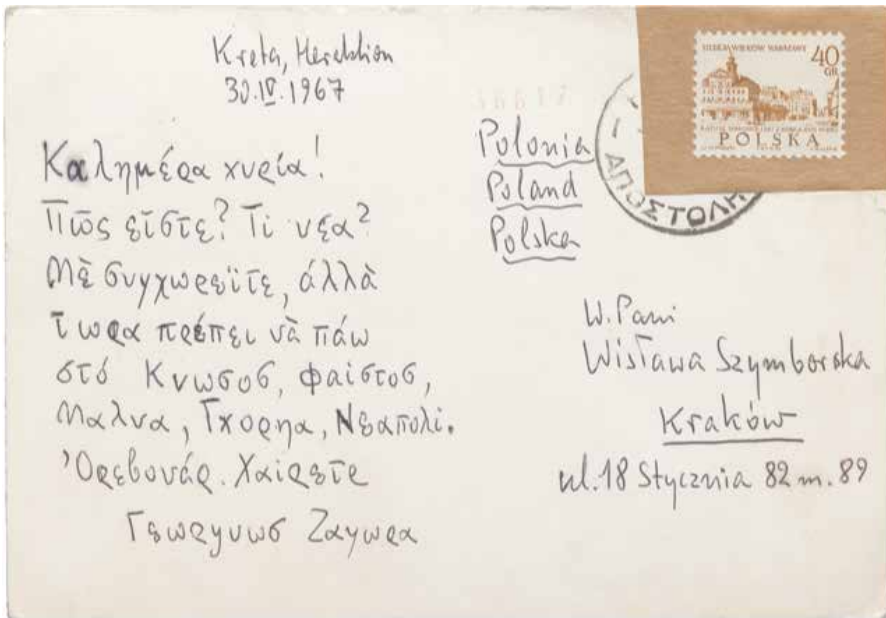 Kreta, Heraklion
30.IV.1967
Καλημέρα χυρία!
Πῶς εἶστε? Τί νέα?
Μὲ συγχωρεῖτε, ἀλλὰ
τωρα πρέπει νὰ πάω
στό Κνωσοσ, φαίστοσ,
Μαλυα, Γχορηα, Νεαπολί.
Ὀρεβουάρ. Χαίρετε
Γεωργυωσ Ζαγωρα
Polonia
Poland
Polska
W.Pani
Wisława Szymborska
Kraków
ul.18 Stycznia 82 m. 89
40
GR
POLSKA
ΑΠΟΣΤΟΛΗ